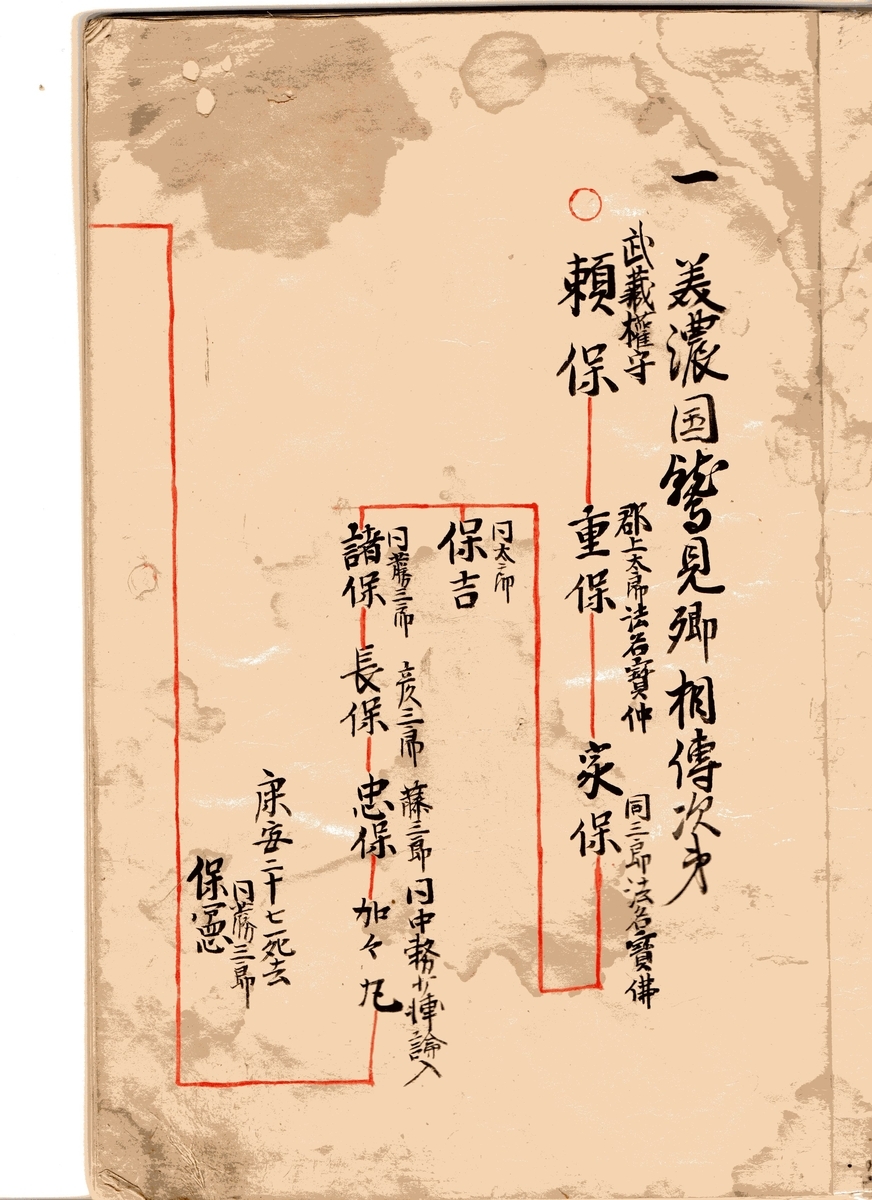 一
美濃国鷲見郷相傳次第
武藏權守
頼保
郡上太郎法名寶仲
重保
同三郎法名寶佛
家保
同太郎
保吉
同藤三郎
諸保
彦三郎
長保
藤三郎
忠保
同中務
加々丸
康安二十七死去
同藤三郎
保憲